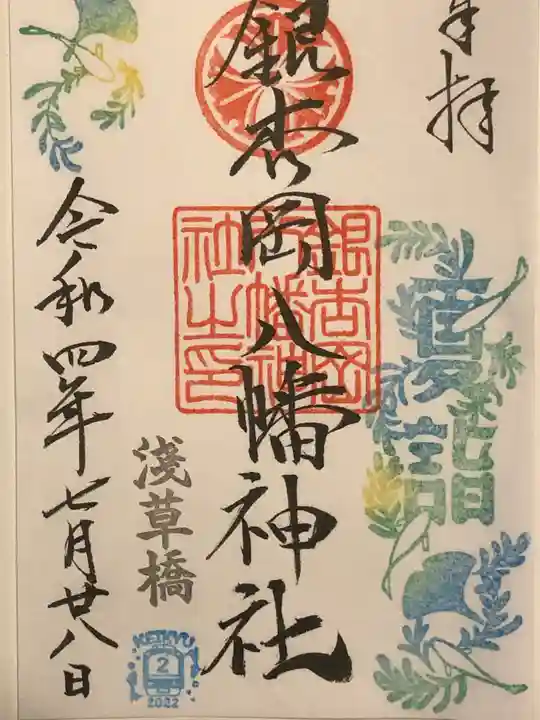 奉拝
銀杏岡八幡神社
銀杏岡
八幡神
社之印
夏詣
浅草橋
令和四年七月廿八日
KEIKYU
2
2022